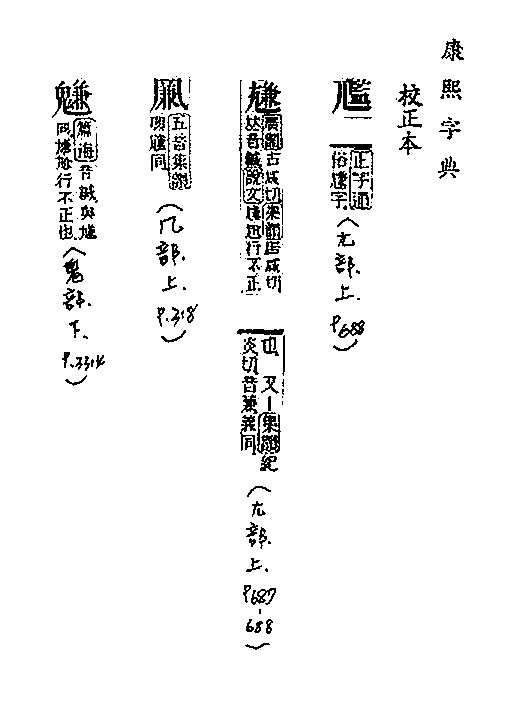 康熙字典
校正本
尷
正字通
俗尲字
(尢部.上.P.688)
尲
廣韻古咸切集韻居咸切
𠀤音緘說文尲尬行不正
也 又集韻紀
炎切音兼義同
(尢部.上.P.687-688)
五音集韻
(几部.上.P.318)
篇海音緘與尲
同尲尬行不正也
(鬼部.下.P.3314)